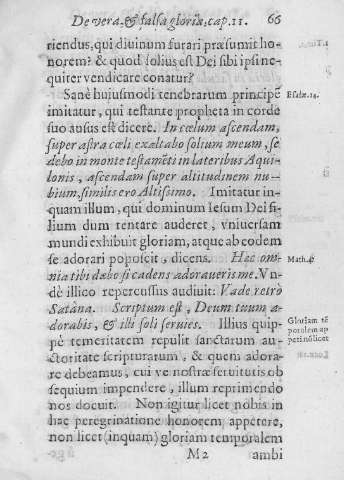 De vera, & falsa gloria, cap. 11. 66
riendus, qui divinum furari præsumit ho-
norem? & quod solius est Dei sibi ipsi ne-
quiter vendicare conatur?
Sanè hujusmodi tenebrarum principē
imitatur, qui testante propheta in corde
suo ausus est dicere. In cœlum ascendam,
super astra cœli exaltabo solium meum, se
debo in monte testamēti in lateribus Aqui-
lonis, ascendam super altitudinem nu-
bium, similis ero Altissimo. Imitatur in-
quam illum, qui dominum Iesum Dei fi-
lium dum tentare auderet, vniversam
mundi exhibuit gloriam, atque ab eodem
se adorari poposcit, dicens. Hæc om-
nia tibi dabo si cadens adoraueris me. Vn-
dè illico repercussus audiuit: Vade retrò
Satâna. Scriptum est, Deum tuum a-
dorabis, & illi soli seruies. Illius quip-
pè temeritatem repulit sanctarum au-
ctoritate scripturarum, & quem adora-
re debeamus, cui ve nostræ servitutis ob
sequium impendere, illum reprimendo
nos docuit. Non igitur licet nobis in
hac peregrinatione honorem appetere,
non licet (inquam) gloriam temporalem
M 2 ambi
Esaiæ. 14.
Math. 4.
Gloriam tē
poralem ap
peti nō licet